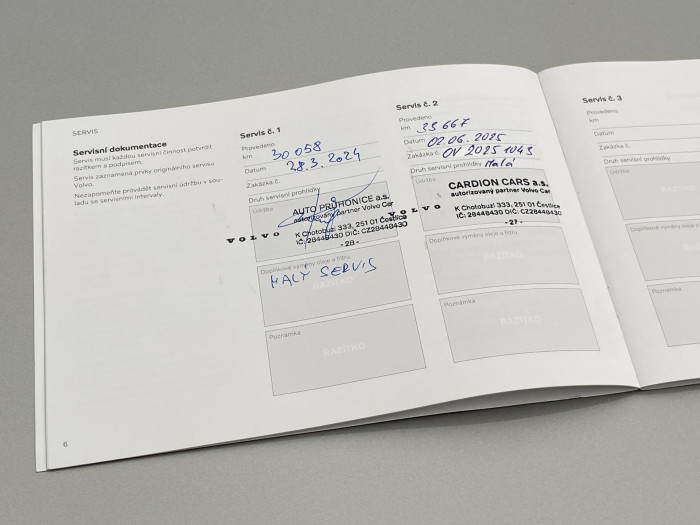 SERVIS
Servisní dokumentace
Servis musí každou servisní činnost potvrdit
razítkem a podpisem.
Servis zaznamená prvky originálního servisu
Volvo.
Nezapomeňte provádět servisní údržbu v sou-
ladu se servisními intervaly.
6
Servis č. 1
Provedeno
km 30 058
Datum 28.3.2024
Zakázka č.
Druh servisní prohlídky
Údržba
AUTO PRŮHONICE a.s.
autorizovaný partner Volvo Car
VOLVO
K Chotobuzi 333, 251 01 Čestlice
IČ: 28448430 DIČ: CZ28448430
- 28 -
Doplňkové výměny oleje a filtru
MALÝ SERVIS
RAZÍTKO
Poznámka
RAZÍTKO
Servis č. 2
Provedeno
km 35 667
Datum 02.06.2025
Zakázka č. OV 2025 1043
Druh servisní prohlídky Malá
Údržba
CARDION CARS a.s.
autorizovaný partner Volvo Car
VOLVO
K Chotobuzi 333, 251 01 Čestlice
IČ: 28448430 DIČ: CZ28448430
- 27 -
Doplňkové výměny oleje a filtru
RAZÍTKO
Poznámka
RAZÍTKO
Servis č. 3
Provedeno
km
Datum
Zakázka č.
Druh servisní
Údržba
RAZÍTKO
Doplňkové
Poznámka